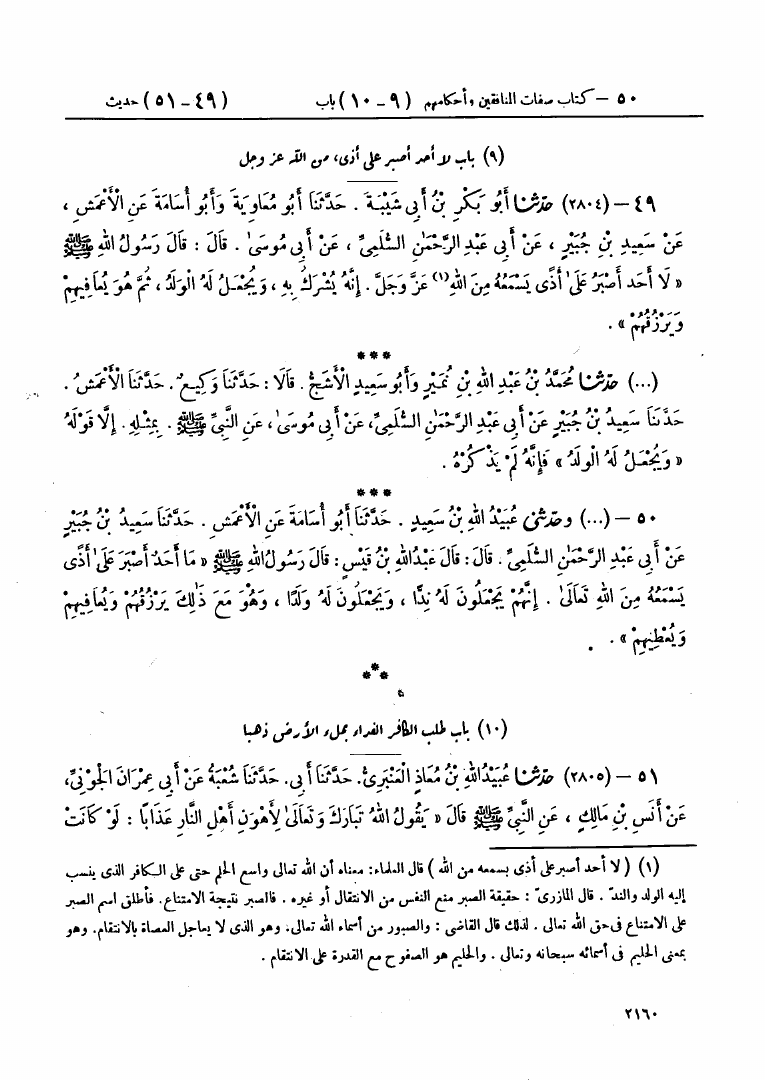 ٥٠ – كتاب صفات المنافقين وأحكامهم (٩ – ١٠) باب (٤٩ – ٥١) حديث
(٩) باب لا أحد أصبر على أذى، من الله عز وجل
٤٩ – (٢٨٠٤) حَدَّثَنَا أَبُو بَكْرِ بْنُ أَبِي شَيْبَةَ . حَدَّثَنَا أَبُو مُعَاوِيَةَ وَأَبُو أُسَامَةَ عَنِ الْأَعْمَشِ ،
عَنْ سَعِيدِ بْنِ جُبَيْرٍ ، عَنْ أَبِي عَبْدِ الرَّحْمَٰنِ السُّلَمِيِّ ، عَنْ أَبِي مُوسَىٰ . قَالَ : قَالَ رَسُولُ اللهِ ﷺ
« لَا أَحَدَ أَصْبَرُ عَلَىٰ أَذًى يَسْمَعُهُ مِنَ اللهِ(١) عَزَّ وَجَلَّ . إِنَّهُ يُشْرَكُ بِهِ ، وَيُجْعَلُ لَهُ الْوَلَدُ ، ثُمَّ هُوَ يُعَافِيهِمْ
وَيَرْزُقُهُمْ » .
***
(...) حَدَّثَنَا مُحَمَّدُ بْنُ عَبْدِ اللهِ بْنِ نُمَيْرٍ وَأَبُو سَعِيدٍ الْأَشَجُّ . قَالَا : حَدَّثَنَا وَكِيعٌ . حَدَّثَنَا الْأَعْمَشُ .
حَدَّثَنَا سَعِيدُ بْنُ جُبَيْرٍ عَنْ أَبِي عَبْدِ الرَّحْمَٰنِ السُّلَمِيِّ، عَنْ أَبِي مُوسَىٰ ، عَنِ النَّبِيِّ ﷺ . بِمِثْلِهِ . إِلَّا قَوْلَهُ
« وَيُجْعَلُ لَهُ الْوَلَدُ » فَإِنَّهُ لَمْ يَذْكُرْهُ .
***
٥٠ – (...) وحَدَّثَنِي عُبَيْدُ اللهِ بْنُ سَعِيدٍ . حَدَّثَنَا أَبُو أُسَامَةَ عَنِ الْأَعْمَشِ . حَدَّثَنَا سَعِيدُ بْنُ جُبَيْرٍ
عَنْ أَبِي عَبْدِ الرَّحْمَٰنِ السُّلَمِيِّ . قَالَ : قَالَ عَبْدُ اللهِ بْنُ قَيْسٍ : قَالَ رَسُولُ اللهِ ﷺ « مَا أَحَدٌ أَصْبَرَ عَلَىٰ أَذًى
يَسْمَعُهُ مِنَ اللهِ تَعَالَىٰ . إِنَّهُمْ يَجْعَلُونَ لَهُ نِدًّا ، وَيَجْعَلُونَ لَهُ وَلَدًا ، وَهُوَ مَعَ ذَٰلِكَ يَرْزُقُهُمْ وَيُعَافِيهِمْ
وَيُعْطِيهِمْ » .
***
(١٠) باب طلب الكافر الفداء بملء الأرض ذهبا
٥١ – (٢٨٠٥) حَدَّثَنَا عُبَيْدُ اللهِ بْنُ مُعَاذٍ الْعَنْبَرِيُّ. حَدَّثَنَا أَبِي. حَدَّثَنَا شُعْبَةُ عَنْ أَبِي عِمْرَانَ الْجَوْنِيِّ،
عَنْ أَنَسِ بْنِ مَالِكٍ ، عَنِ النَّبِيِّ ﷺ قَالَ « يَقُولُ اللهُ تَبَارَكَ وَتَعَالَىٰ لِأَهْوَنِ أَهْلِ النَّارِ عَذَابًا : لَوْ كَانَتْ
(١) ( لا أحد أصبر على أذى يسمعه من الله ) قال العلماء: معناه أن الله تعالى واسع الحلم حتى على الكافر الذى ينسب
إليه الولد والندّ . قال المازرىّ : حقيقة الصبر منع النفس من الانتقال أو غيره . فالصبر نتيجة الامتناع. فأطلق اسم الصبر
على الامتناع فى حق الله تعالى . لذلك قال القاضى : والصبور من أسماء الله تعالى، وهو الذى لا يعاجل العصاة بالانتقام. وهو
بمعنى الحليم فى أسمائه سبحانه وتعالى . والحليم هو الصفوح مع القدرة على الانتقام .
٢١٦٠